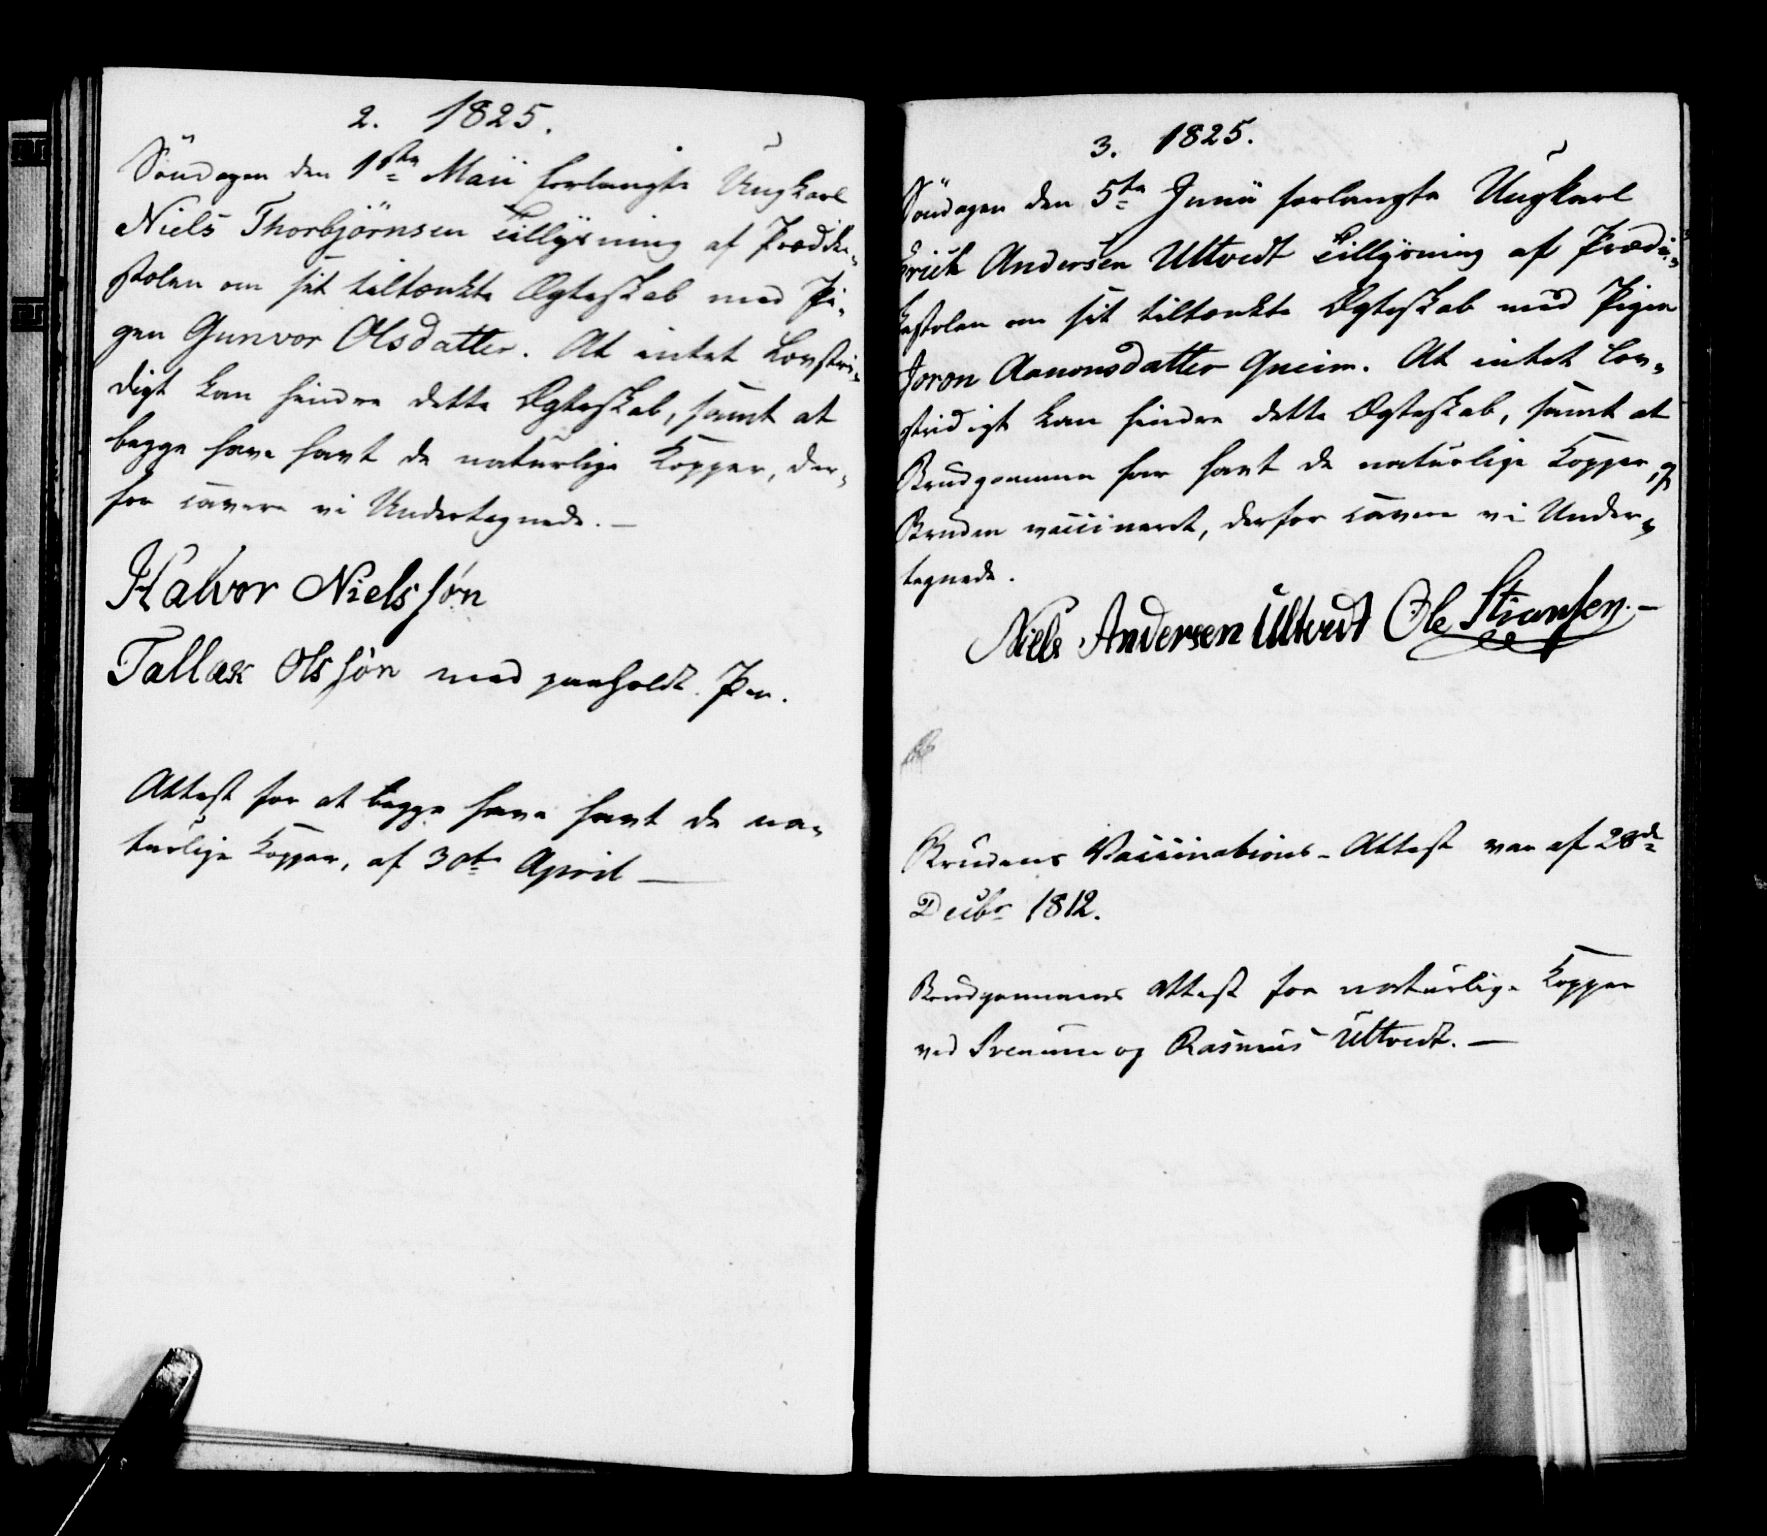 2. 1825.
Söndagen den 1ste Maii forlangte Ungkarl
Niels Thorbjörnsen Tillÿsning af Prædike-
stolen om sit tiltænkte Ægteskab med Pi-
gen Gunvor Olsdatter. At intet Lovstri-
digt kan hindre dette Ægteskab, samt at
begge have havt de naturlige Kopper, der-
for cavere vi Undertegnede. —
Halvor Nielssøn
Tallak Olssøn med paaholdt Pen.
Attest for at begge have havt de na-
turlige Kopper, af 30te April —
3. 1825.
Söndagen den 5te Junii forlangte Ungkarl
Erich Andersen Ultvedt Tillÿsning af Prædi-
kestolen om sit tiltænkte Ægteskab med Pigen
Joron Aanonsdatter Gueim. At intet Lov-
stridigt kan hindre dette Ægteskab, samt at
Brudgommen har havt de naturlige Kopper, og
Bruden vaccineret, derfor cavere vi Under-
tegnede.
Niels Andersen Ultvedt Ole Stiansen. —
Brudens Vaccinations-Attest var af 28de
Decbr 1812.
Brudgommens Attest for naturlige Kopper
ved og Rasmus Ultvedt. —